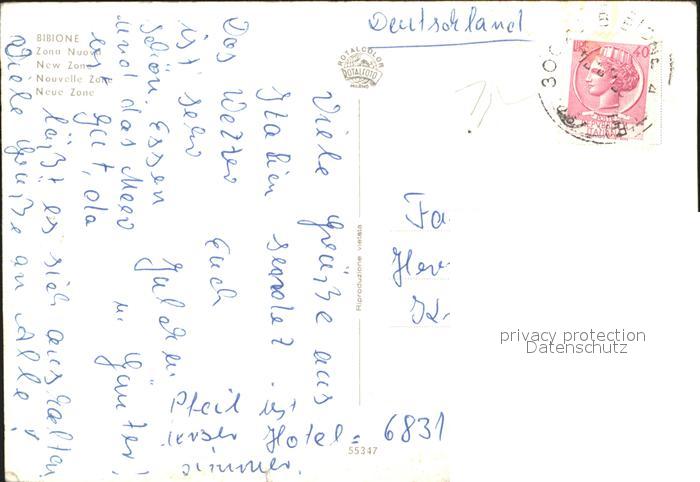 BIBIONE
Zona Nuova
New Zone
Nouvelle Zone
Neue Zone
ROTALCOLOR
ROTALFOTO
MILANO
Deutschland
BIBIONE
40
ITALIANA
Viele Grüße aus
Italien sendet
Euch
u. Günter!
Das Wetter
ist sehr
schön. Essen
und das Meer
ist gut, da
läßt es sich aushalten
Viele Grüße an Alle!
Pfeil ist
unser Hotel=
zimmer.
Riproduzione vietata
55347
Fa
Her
6831
privacy protection
Datenschutz